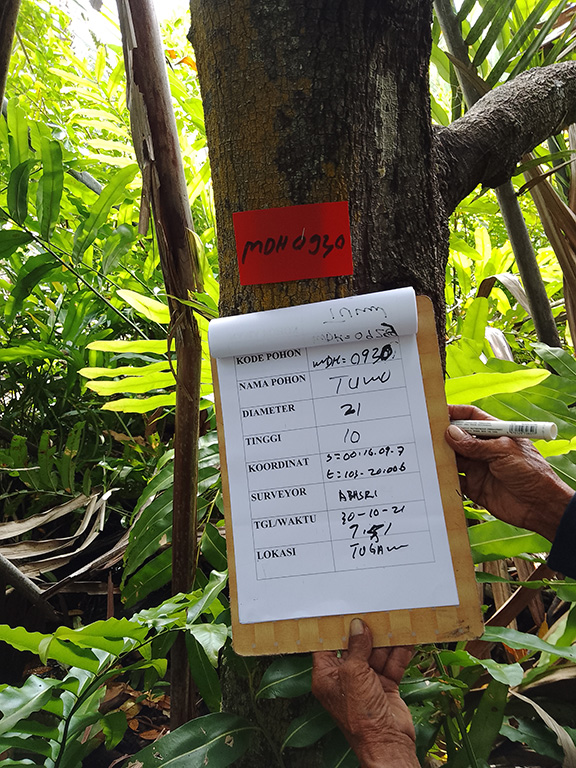 MDH 0930
KODE POHON MDH = 0930
NAMA POHON TUMU
DIAMETER 21
TINGGI 10
KOORDINAT S = 00.16.09.7
E = 103.20.006
SURVEYOR ABASRI
TGL/WAKTU 30-10-21
LOKASI